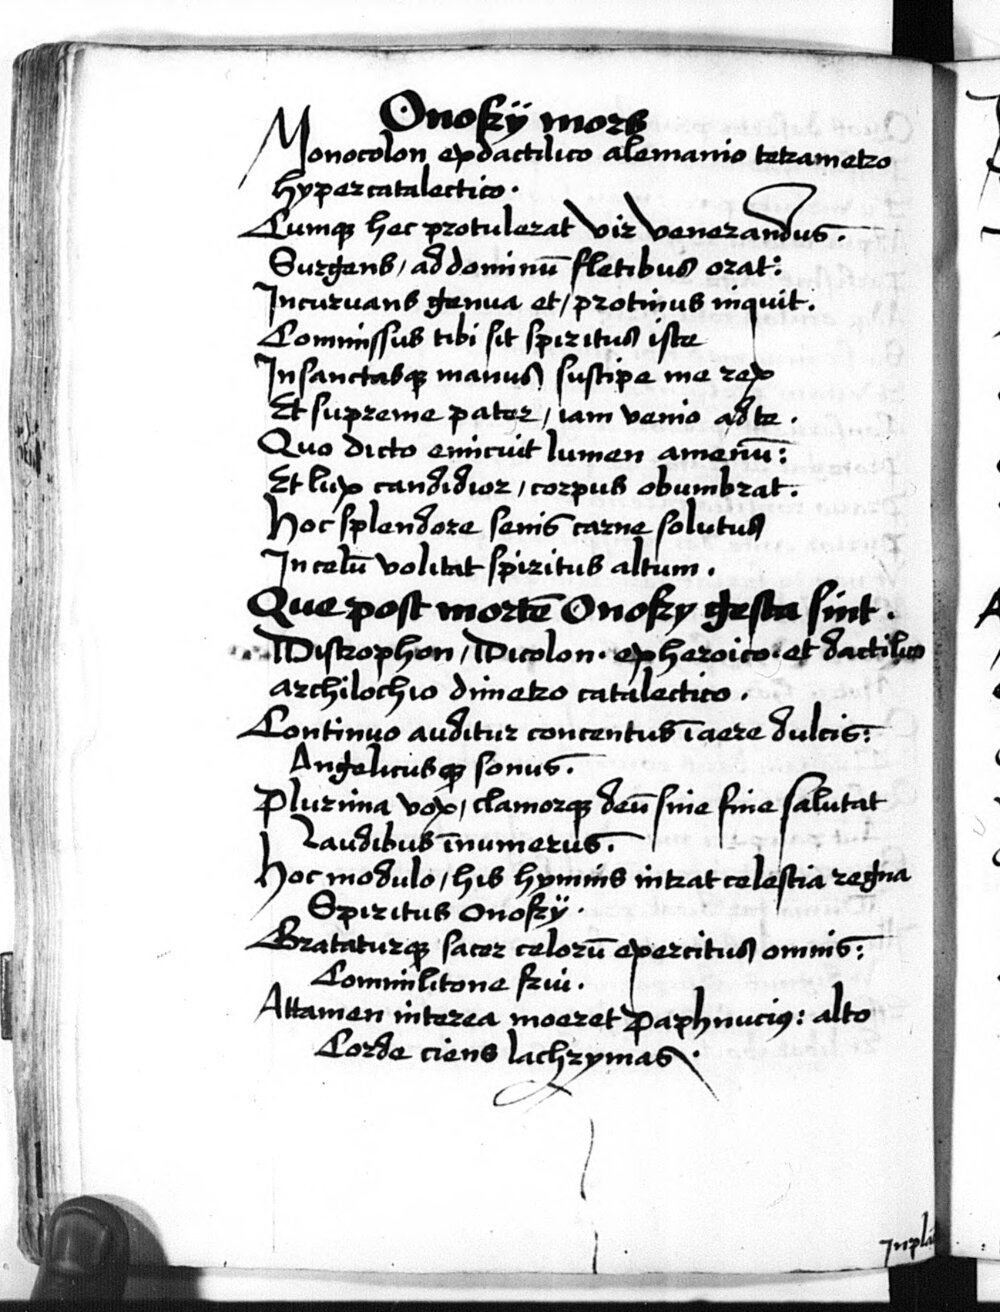 Onofrÿ mors
Monocolon ex dactilico alemanio tetrametro
hypercatalectico.
Cumque hec protulerat vir venerandus.
Surgens / ad dominū fletibus orat:
Incurvans genua et / protinus inquit.
Commissus tibi sit spiritus iste
In sanctasque manus suscipe me rex
Et supreme pater / iam venio ad te.
Quo dicto emicuit lumen amenū:
Et lux candidior / corpus obumbrat.
Hoc splendore senis carne solutus
In celū volitat spiritus altum.
Que post mortē Onofry gesta sint.
Distrophon / Dicolon. ex heroico. et dactilico
archilochio dimetro catalectico.
Continuo auditur concentus ī aere dulcis:
Angelicusque sonus.
Plurima vox / clamorque deū sine fine salutat
Laudibus īnumerus.
Hoc modulo / his hymnis intrat celestia regna
Spiritus Onofrÿ.
Grataturque sacer celorū exercitus omnis:
Commilitone frui.
Attamen interea moeret Paphnucius: alto
Corde ciens lachrymas.